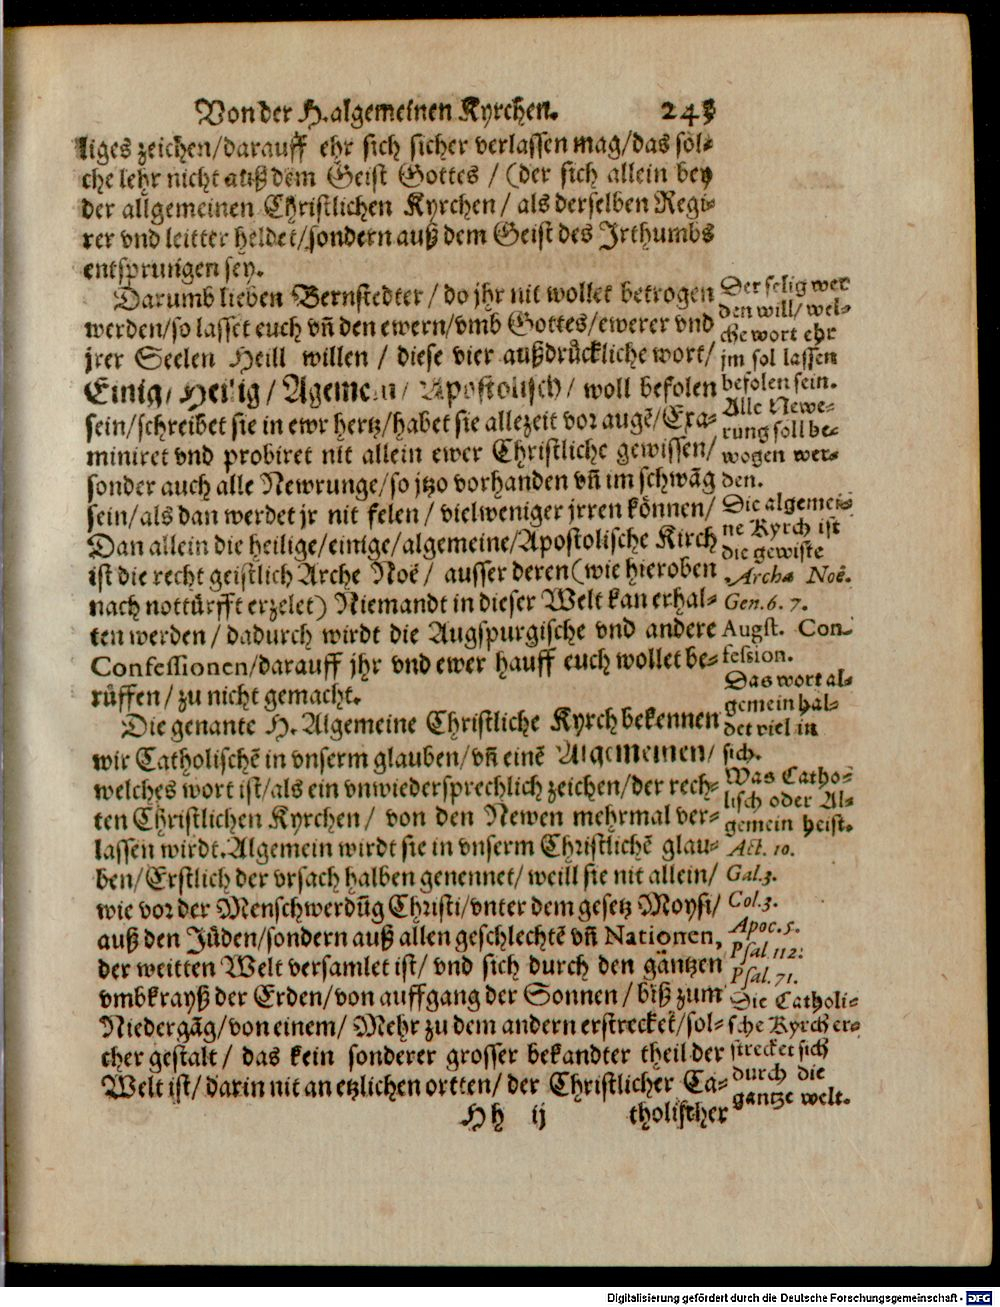 Von der H. algemeinen Kyrchen. 243
liges zeichen/darauff ehr sich sicher verlassen mag/das sol-
che lehr nicht auß dem Geist Gottes / (der sich allein bey
der allgemeinen Christlichen Kyrchen / als derselben Regi-
rer vnd leitter heldet/sondern auß dem Geist des Irthumbs
entsprungen sey.
Darumb lieben Bernstedter / do jhr nit wollet betrogen
werden/so lasset euch vñ den ewern/vmb Gottes/ewerer vnd
jrer Seelen Heill willen / diese vier außdrückliche wort/
Einig/ Heilig / Agemein / Apostolisch / woll befolen
sein/schreibet sie in ewr hertz/habet sie allezeit vor augẽ/Exa-
miniret vnd probiret nit allein ewer Christliche gewissen/
sonder auch alle Newrunge/so jtzo vorhanden vñ im schwãg
sein/als dan werdet jr nit felen / vielweniger jrren können/
Dan allein die heilige/einige/algemeine/Apostolische Kirch
ist die recht geistlich Arche Noë / ausser deren (wie hieroben
nach nottürfft erzelet) Niemandt in dieser Welt kan erhal-
ten werden / dadurch wirdt die Augspurgische vnd andere
Confessionen/darauff jhr vnd ewer hauff euch wollet be-
rüffen / zu nicht gemacht.
Die genante H. Algemeine Christliche Kyrch bekennen
wir Catholischẽ in vnserm glauben/vñ einẽ Algemeinen/
welches wort ist/als ein vnwiedersprechlich zeichen/der rech-
ten Christlichen Kyrchen / von den Newen mehrmal ver-
lassen wirdt. Algemein wirdt sie in vnserm Christlichẽ glau-
ben/Erstlich der vrsach halben genennet/weill sie nit allein/
wie vor der Menschwerdũg Christi/vnter dem gesetz Moysi/
auß den Jüden/sondern auß allen geschlechtẽ vñ Nationen,
der weitten Welt versamlet ist/ vnd sich durch den gäntzen
vmbkrayß der Erden/von auffgang der Sonnen / biß zum
Niedergãg/von einem/ Mehr zu dem andern erstrecket/sol-
cher gestalt / das kein sonderer grosser bekandter theil der
Welt ist/darin nit an etzlichen ortten/ der Christlicher Ca-
Hh ij tholisther
Der selig wer
den will/ wel-
che wort ehr
jm sol lassen
befolen sein.
Alle Newe-
rung soll be-
wogen wer-
den.
Die algemei-
ne Kyrch ist
die gewiste
Archa Noë.
Gen. 6. 7.
Augst. Con-
fession.
Das wort al-
gemein hal-
det viel in
sich.
Was Catho-
lisch oder Al-
gemein heist.
Act. 10.
Gal. 3.
Col. 3.
Apoc. 5.
Psal. 112.
Psal. 71.
Die Catholi-
sche Kyrch er-
strecket sich
durch die
gantze welt.
Digitalisierung gefördert durch die Deutsche Forschungsgemeinschaft - DFG